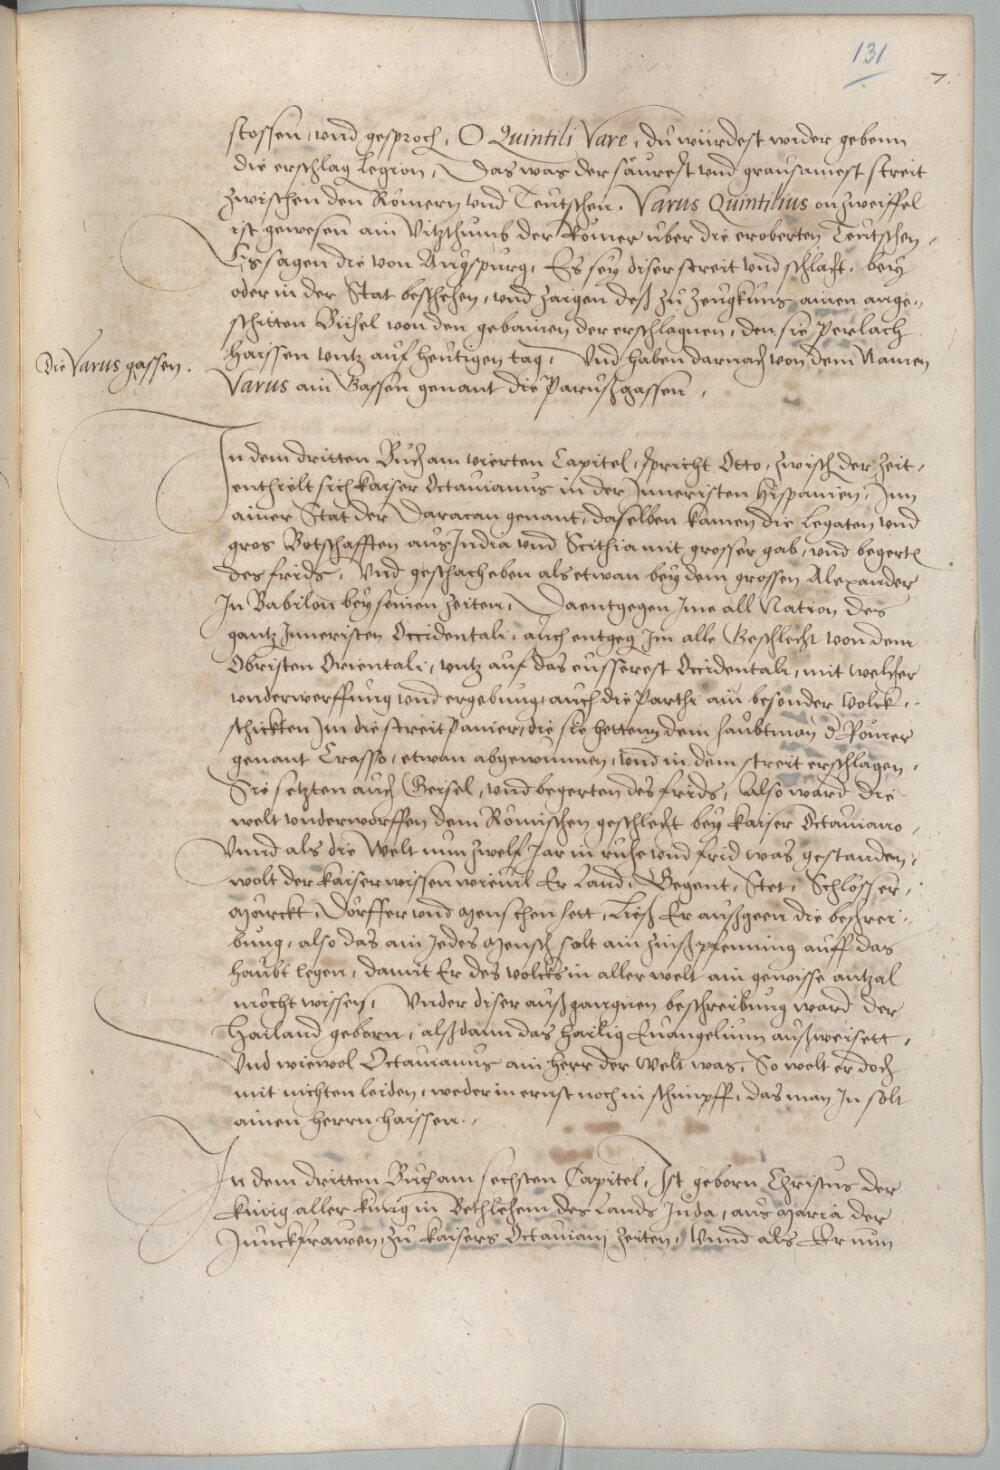 131
7.
stossen, und gesproch, O Quintili Vare, du würdest wider gebenn
die erschlag Legion, Das was der säurest und grausamest streit
zwischen den Römern und Teutschen. Varus Quintilius on zweiffel
ist gewesen ain Vitzthumb der Römer über die eroberten Teutschen,
Es sagen die von Augspurg, Es sey diser streit und schlacht, bey
oder in der Stat beschehen, und zaigen deß zu zeugknus ainen ange-
schitten Bühel von den gebainen der erschlagnen, den sie Perlach
haissen untz auf heutigen tag, Und haben darnach von dem Namen
Die Varus gassen.
Varus ain Gassen genant die Parußgassen,
In dem dritten Buch am vierten Capitel, spricht Otto, zwisch der zeit,
enthielt sich kaiser Octavianus in der Inneristen Hispanien, Inn
ainer Stat der Daracan genant, daselben kamen die Legaten und
gros Botschafften aus India und Scithia mit grosser gab, und begert
des frids, Und geschach eben als etwan bey dem grossen Alexander
In Babilon bey seinen zeiten, Da entgegen Ime all Nation des
gantz Inneristen Occidentali, auch entgeg Im alle Geschlecht von dem
Obristen Orientali, untz auf das eusserest Occidentali, mit welcher
underwerffung und ergebung, auch die Parthi ain besonder Volck,
schickten Im die streit Panier, die sie hettenn dem haubtman d Römer
genant Crasso, etwan abgewunnen, und in dem streit erschlagen,
Sie setzten auch Geisel, und begerten des frids, Also ward die
welt underworffen dem Römischen geschlecht bey kaiser Octaviano,
Unnd als die Welt nun zwelf Jar in ruhe und frid was gestanden,
wolt der kaiser wissen wievil Er Land, Gegent, Stet, Schlösser,
Märckt, Dörffer und Menschen hett, Ließ Er außgeen die beschrei-
bung, also das ain Jedes Mensch solt ain zinßpfenning auff das
haubt legen, damit Er des volcks in aller welt ain gewisse antzal
möcht wissen, Under diser außgangnen beschreibung ward der
Hailand geborn, alß dann das hailig Evangelium außweisett,
Und wiewol Octavianus ain herr der Welt was, So wolt er doch
mit nichten leiden, weder in ernst noch in schimpff, das man In solt
ainen herrn haissen.,
In dem dritten Buch am sechsten Capitel, Ist geborn Christus der
künig aller künig in Bethlehem des Lands Juda, aus Maria der
Junckfrawen, zu kaisers Octaviani zeiten, Unnd als Er nun